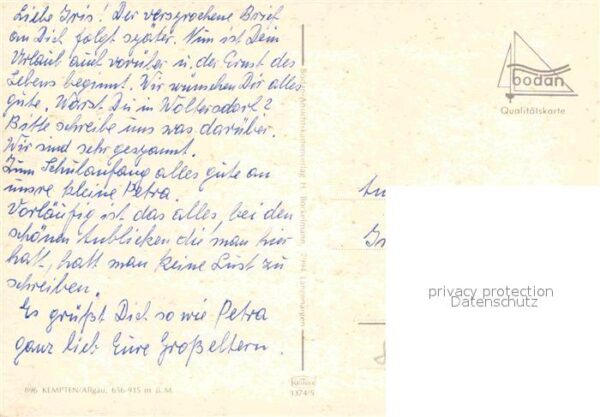 Liebe Iris! Der versprochene Brief
an Dich folgt später. Nun ist Dein
Urlaub auch vorüber u. der Ernst des
Lebens beginnt. Wir wünschen Dir alles
gute. Warst Du in Woltersdorf?
Bitte schreibe uns was darüber.
Wir sind sehr gespannt.
Zum Schulanfang alles gute an
unsre kleine Petra.
Vorläufig ist das alles, bei den
schönen Anblicken die man hier
hatt, hatt man keine Lust zu
schreiben.
Es grüßt Dich so wie Petra
ganz lieb Eure Großeltern.
896 KEMPTEN/Allgäu, 656-915 m ü.M.
H. Bockelmann
bodan
Qualitätskarte
privacy protection
Datenschutz
1374/5